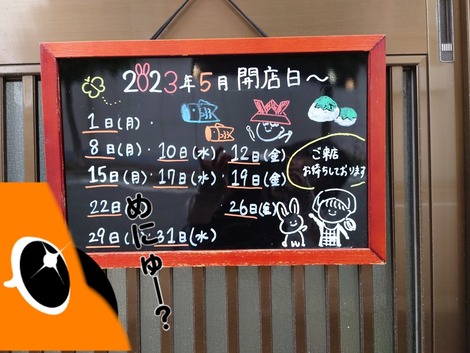 2023年5月 開店日～
1日(月)・
8日(月)・10日(水)・12日(金)
15日(月)・17日(水)・19日(金)
22日
26日(金)
29日(
31日(水)
ご来店
お待ちしております
めにゅー?